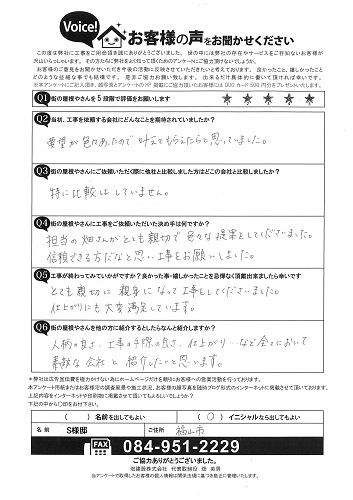 Voice!
お客様の声をお聞かせください
この度は弊社に工事をご用命頂き誠にありがとうございました。
Q1 街の屋根やさんを5段階で評価をお願いします ★ ★ ★ ★ ★
Q2 当初、工事を依頼する会社にどんなことを期待されていましたか?
要望が色々あったので叶えてもらえたらと思っていました。
Q3 街の屋根やさんにご依頼いただく際に他社と比較しました方はどこの会社と比較しましたか?
特に比較はしていません。
Q4 街の屋根やさんに工事をご依頼いただいた決め手は何ですか?
担当の畑さんがとても親切で色々な提案をしてくださいました。
信頼できる方だなと思い工事をお願いしました。
Q5 工事が終わってみていかがですか?良かった事・嬉しかったことを忌憚なく頂戴出来ましたら幸いです
とても親切に親身になって工事をしてくださいました。
仕上がりにも大変満足しています。
Q6 街の屋根やさんを他の方に紹介するとしたらなんと紹介しますか?
人柄の良さ、工事の手際の良さ、仕上がり…など全てにおいて
素敵な会社と紹介したいと思います。
下記の中から〇印をお付け下さい。
( )名前を出してもよい (〇)イニシャルなら出してもよい
名前 S様邸 ご住所 福山市
FAX 084-951-2229
ご協力ありがとうございました。
畑建設株式会社 代表取締役 畑 英男